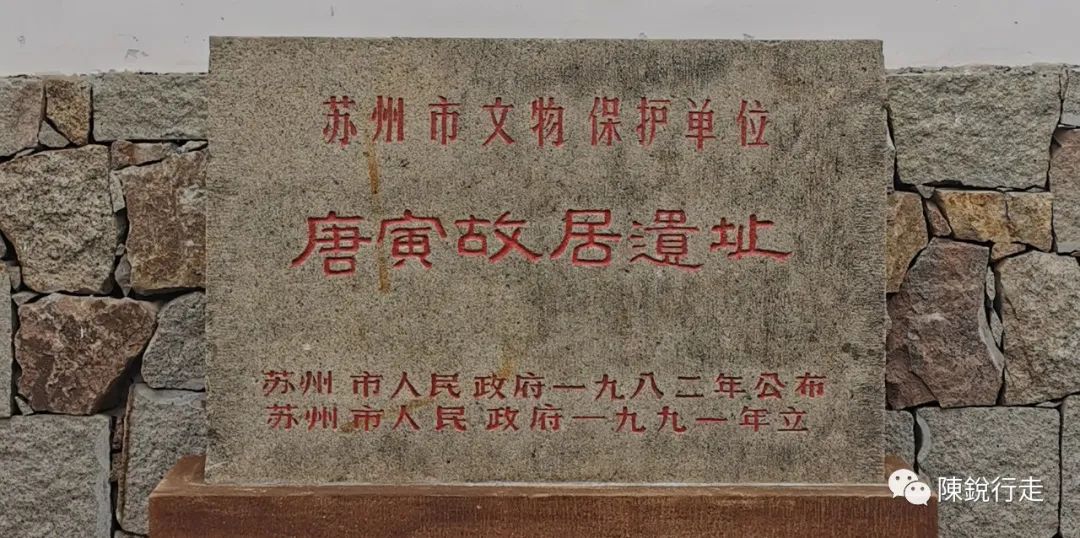 苏州市文物保护单位
唐寅故居遺址
苏州市人民政府一九八二年公布
苏州市人民政府一九九一年立
陳銳行走